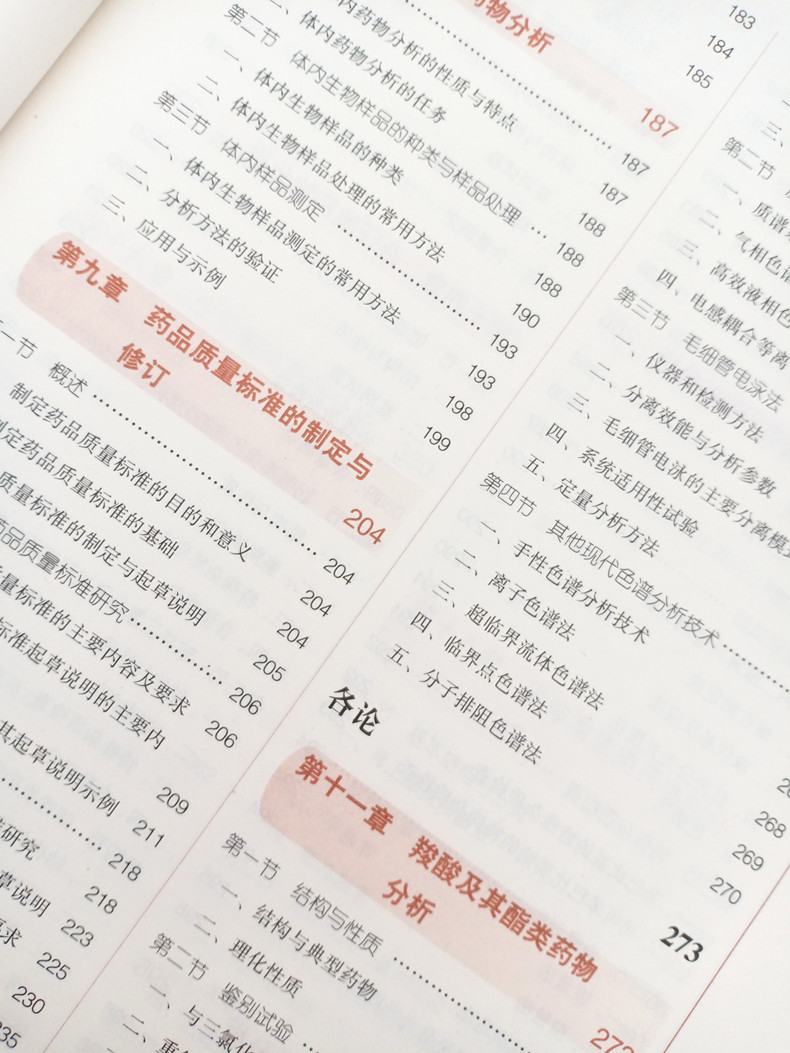 183
184
185
药物分析 187
内药物分析的性质与特点 187
二、体内药物分析的任务 187
第二节 体内生物样品的种类与样品处理 … 188
一、体内生物样品的种类 188
二、体内生物样品处理的常用方法 188
190
第三节 体内样品测定 193
一、体内生物样品测定的常用方法 193
二、分析方法的验证 198
三、应用与示例 199
第九章 药品质量标准的制定与
修订 204
一节 概述 204
制定药品质量标准的目的和意义 204
制定药品质量标准的基础 204
质量标准的制定与起草说明 205
药品质量标准研究 206
量标准的主要内容及要求 206
标准起草说明的主要内
209
其起草说明示例 211
218
研究 218
草说明 223
要求 225
230
235
第二节
一、质谱
二、气相色谱
三、高效液相色
四、电感耦合等离
第三节 毛细管电泳法
一、仪器和检测方法
二、分离效能与分析参数
三、毛细管电泳的主要分离模式
四、系统适用性试验
五、定量分析方法
第四节 其他现代色谱分析技术
一、手性色谱分析技术
二、离子色谱法
三、超临界流体色谱法 268
四、临界点色谱法 269
五、分子排阻色谱法 270
各论 273
第十一章 羧酸及其酯类药物
分析 273
第一节 结构与性质
一、结构与典型药物
二、理化性质
第二节 鉴别试验
一、与三氯化
二、重